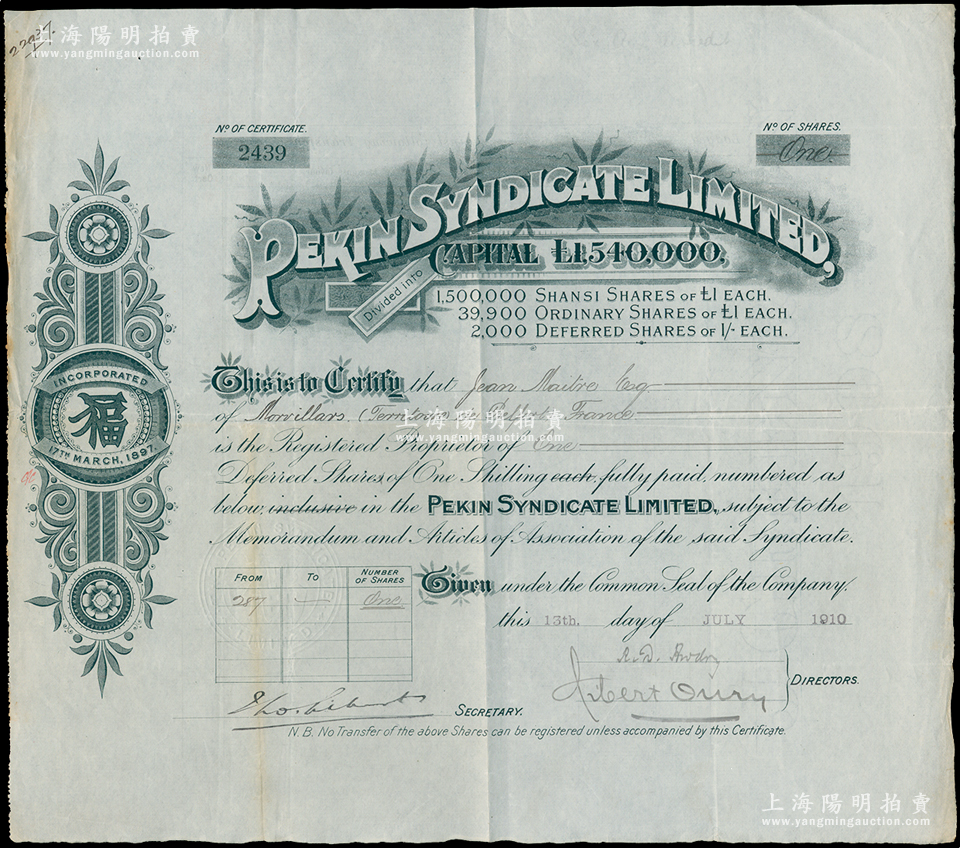 上海陽明拍賣
www.yangmingauction.com
No OF CERTIFICATE.
2439
No OF SHARES.
One
PEKIN SYNDICATE LIMITED,
CAPITAL £1,540,000,
Divided into
1,500,000 SHANSI SHARES OF £1 EACH.
39,900 ORDINARY SHARES OF £1 EACH.
2,000 DEFERRED SHARES OF 1/- EACH.
INCORPORATED
福
17TH MARCH, 1897.
This is to Certify that Jean Maitre Esq
of Morvillars (Territoire de Belfort) France
上海陽明拍賣
www.yangmingauction.com
is the Registered Proprietor of One
Deferred Shares of One Shilling each, fully paid, numbered as
below, inclusive in the PEKIN SYNDICATE LIMITED, subject to the
Memorandum and Articles of Association of the said Syndicate.
FROM TO NUMBER OF SHARES
287 — One
Given under the Common Seal of the Company,
this 13th. day of JULY 1910
Albert Oury
DIRECTORS.
SECRETARY.
N.B. No Transfer of the above Shares can be registered unless accompanied by this Certificate.
上海陽明拍賣
www.yangmingauction.com